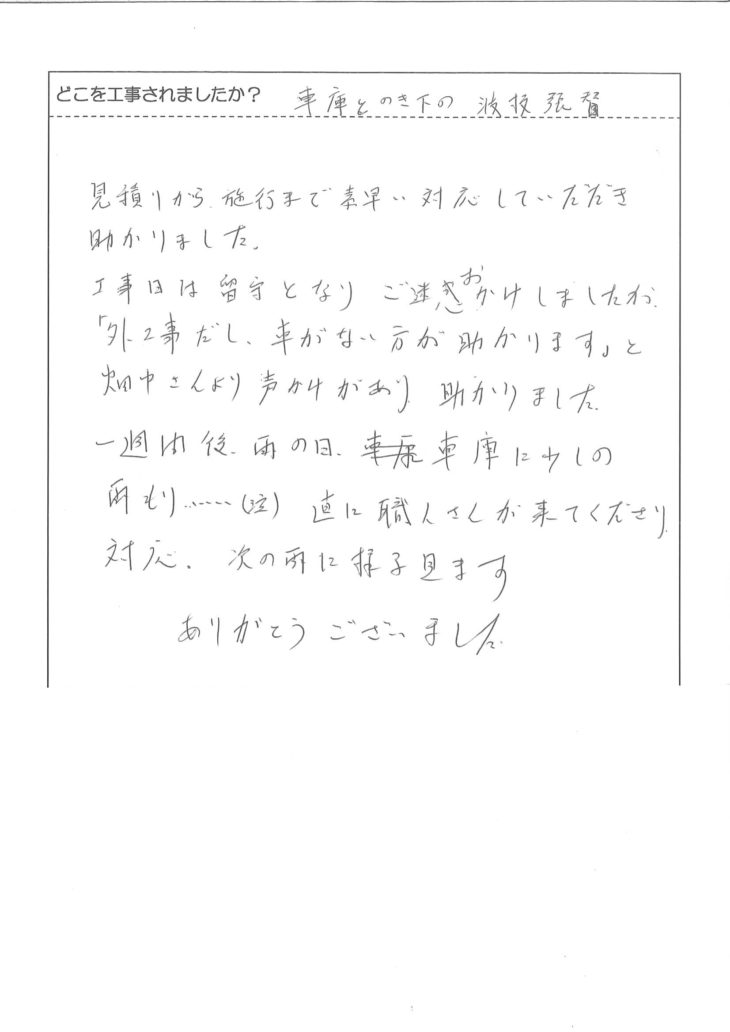 どこを工事されましたか？ 車庫とのき下の 波板張替
見積りから 施行まで素早い対応していただき
助かりました。
工事日は留守となり ご迷惑おかけしましたが、
「外工事だし、車がない方が助かります」と
畑中さんより声かけがあり 助かりました。
一週間後、雨の日、車庫に少しの
雨もり……(泣) 直に職人さんが来てくださり
対応。 次の雨に様子見ます
ありがとうございました。